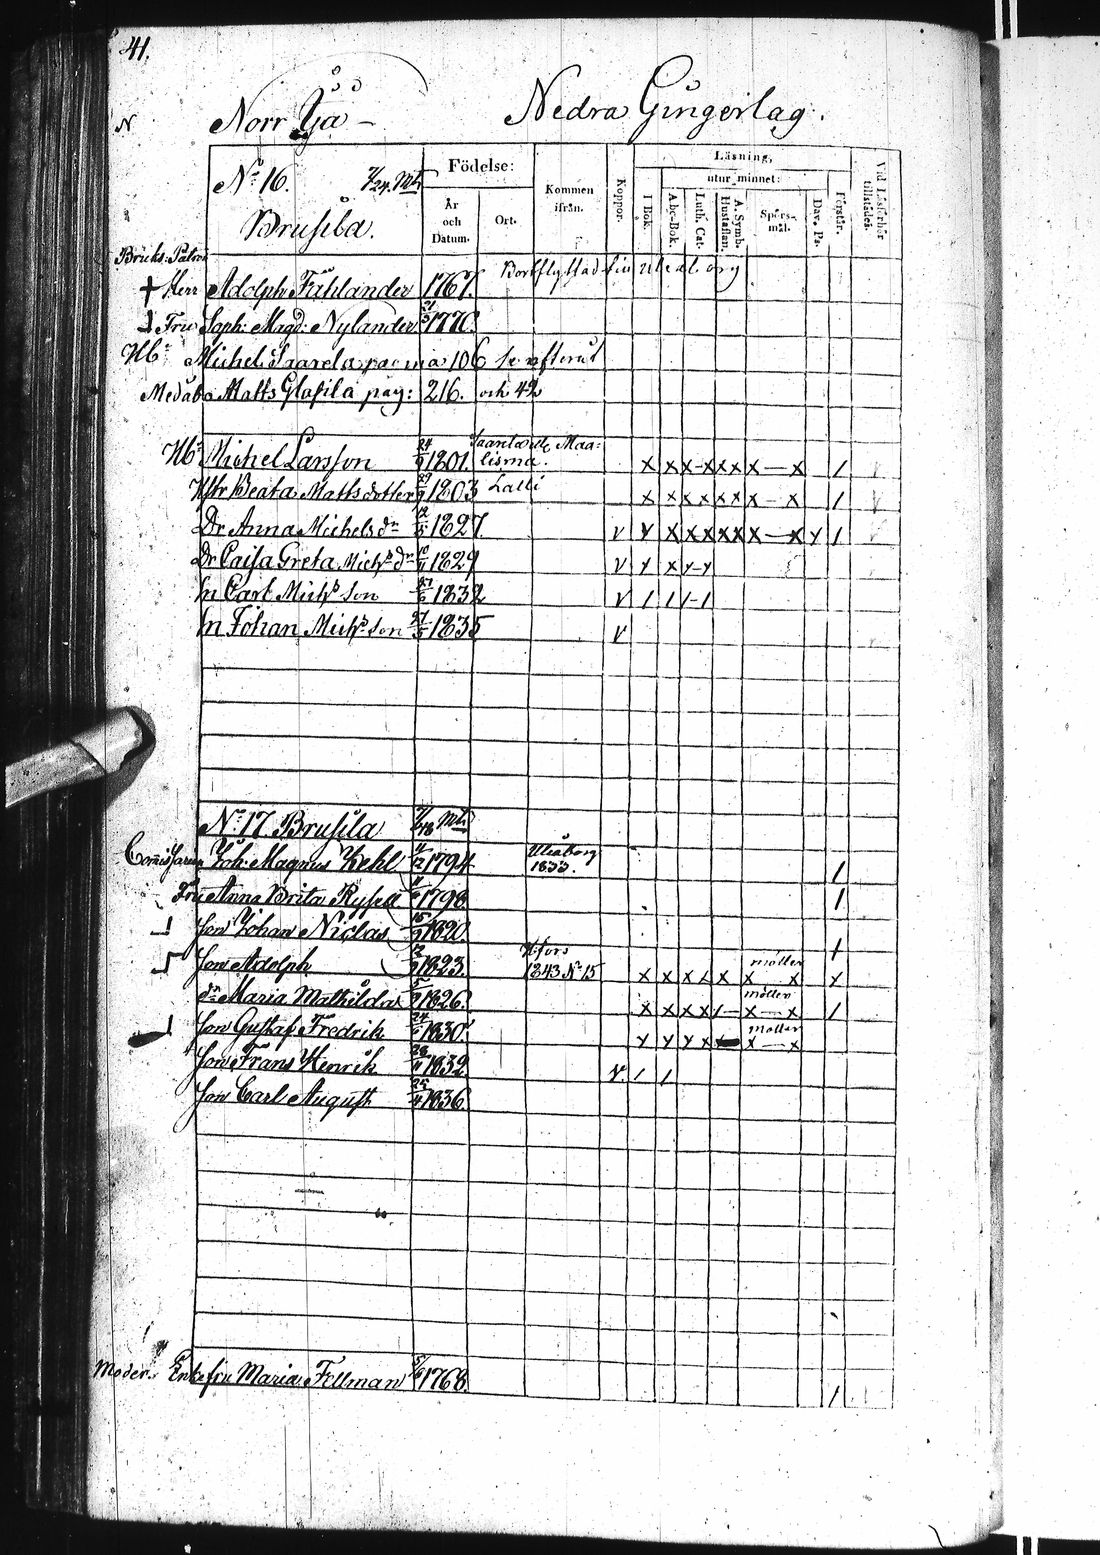 41.
N Norr Yå - Nedra Gungerlag.
No 16. 7/24 Mtl
Brusila.
Födelse:
År och Datum.
Ort.
Kommen ifrån.
Koppor.
Läsning,
utur minnet:
I Bok.
Abc-Bok.
Luth. Cat.
Hustaflan.
A. Symb.
Spörs-mål.
Dav. Ps.
Förstår.
Vid Läseförhör tillstädes.
Bruks-Patron
Herr Adolph Fahlander 1767. Bortflyttad till Uleåborg
Fru Soph: Magd: Nylander 21/3 1770.
Hb: Michel pagina 106 se efterut
Medåbo Matts Glasila pag: 216. och 42
Hb: Michel Larsson 24/9 1801. Maa-lisma. x x x-x x x x — x 1
Hstr Beata Mattsdotter 29/9 1803 Lalli x x x x x x x - x 1
Dr Anna Michelsdr 12/5 1827. v y x x x x x x — x y 1
Dr Caisa Greta Michs dr 10/11 1829 v y x y-y
Sn Carl Michs son 1832 v 1 1 1-1
Sn Johan Michs son 27/5 1835 v
No 17 Brusila 7/48 Mtl
Comissarien Joh: Magnus Kehl 11/12 1794 Uleåborg 1833. 1
Fru Anna Brita 1798. 1
Son Johan Niclas 15/9 1820. 1
Son Adolph 1823. H:fors 1843 No 15 x x x x x möller x x y
dr Maria Mathilda 5/9 1826. x x x x 1 — möller x — x 1
Son Gustaf Fredrik 24/6 1830. y y y x möller x — x
Son Frans Henrik 28/11 1832. v. 1 1
Son Carl August 25/4 1836.
Moder: Enkefru Maria Fellman 5/6 1768. 1